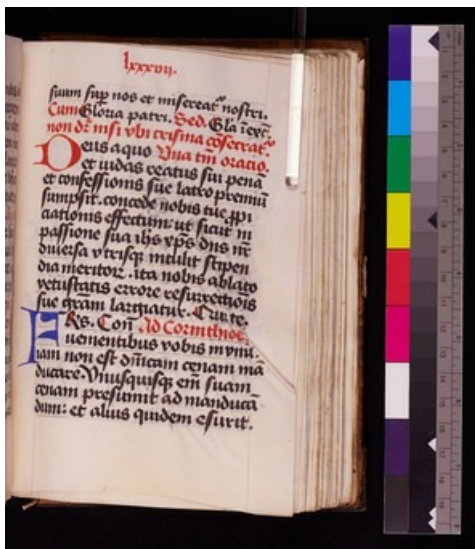 lxxxvii.
suum sup nos et misereat᷒ nostri.
Cum Gloria patri. Sed. Gla ī exc̄
non dr̄ nisi vbi crisma cōsecrat᷒.
Deus a quo Vna tm̄ oratio.
et iudas reatus sui penā
et confessionis sue latro premiū
sumpsit. concede nobis tue ꝓpi
ciationis effectum: ut sicut in
passione sua ihs xp̄s dns nr̄
diuersa vtrisqꝫ intulit stipen
dia meritoꝝ. ita nobis ablato
vetustatis errore resurrectiōis
sue gr̄am largiatur. Qui te.
Ad Corinthios.
uenientibus vobis in vnū.
iam non est dn̄icam cenam mā
ducare. Vnusquisqꝫ em̄ suam
cenam presumit ad manducā
dum: et alius quidem esurit.